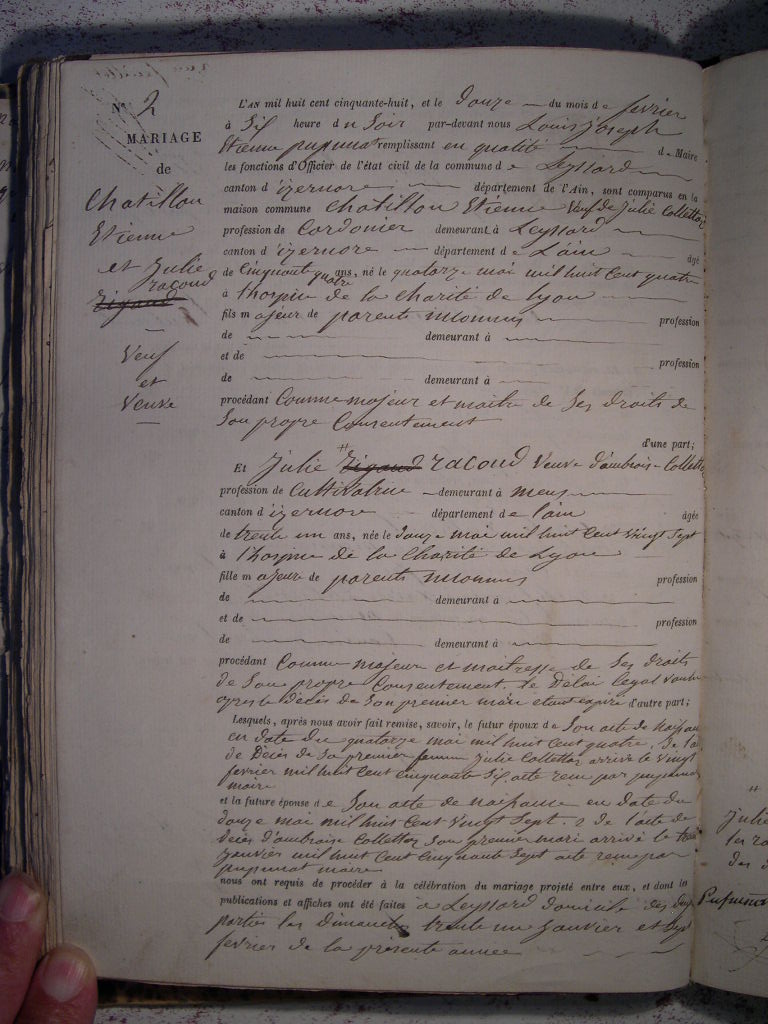 N° 2
MARIAGE
de
Chatillon
Etienne
et Julie
racoud
rigaud
Veuf
et
Veuve
L'AN mil huit cent cinquante-huit, et le Douze du mois de fevrier
à Six heure du Soir par-devant nous Louis joseph
Etienne pupunat remplissant en qualité de Maire
les fonctions d'Officier de l'état civil de la commune de Leyssard
canton d'izernore département de l'Ain, sont comparus en la
maison commune Chatillon Etienne Veuf de Julie Collettaz
profession de Cordonier demeurant à Leyssard
canton d'izernore département de L'ain âgé
de Cinquante quatre ans, né le quatorze mai mil huit Cent quatre
à l'hospice de la charité de lyon
fils majeur de parents inconnus profession
de demeurant à
et de profession
de demeurant à
procédant Comme majeur et maitre de Ses droits de
Son propre Consentement
d'une part;
Et Julie rigaud # racoud Veuve d'ambrois Collettaz
profession de Cultivatrice demeurant à meus
canton d'izernore département de l'ain âgée
de trente un ans, née le Douze mai mil huit Cent Vingt Sept
à l'hospice de la Charité de Lyon
fille majeure de parents inconnus profession
de demeurant à
et de profession
de demeurant à
procédant Comme majeure et maitresse de Ses droits
de Son propre Consentement. le Délai legal voulu
apres le décès de Son premier mari etant expiré d'autre part;
Lesquels, après nous avoir fait remise, savoir, le futur époux de Son acte de naissance
en date du quatorze mai mil huit Cent quatre. De l'acte
de Décès de Sa premier femme Julie Collettaz arrivé le Vingt
fevrier mil huit Cent cinquante Six acte reçu par pupunat
maire
et la future épouse de Son acte de naissance en date du
douze mai mil huit Cent Vingt Sept. 2 De l'acte de
décès d'ambroise Collettaz Son premier mari arrivé le treize
Janvier mil huit Cent Cinquante Sept acte reçu par
pupunat maire
nous ont requis de procéder à la célébration du mariage projeté entre eux, et dont les
publications et affiches ont été faites à Leyssard domicile des deux
parties les dimanches trente un Janvier et Sept
fevrier de la présente année
#
Julie
Pupunat